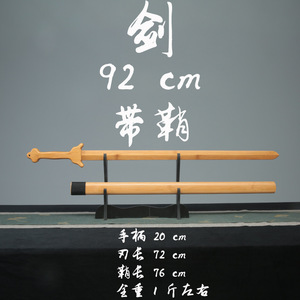 剑
92 cm
带鞘
手柄 20 cm
刃长 72 cm
鞘长 76 cm
全重 1 斤左右